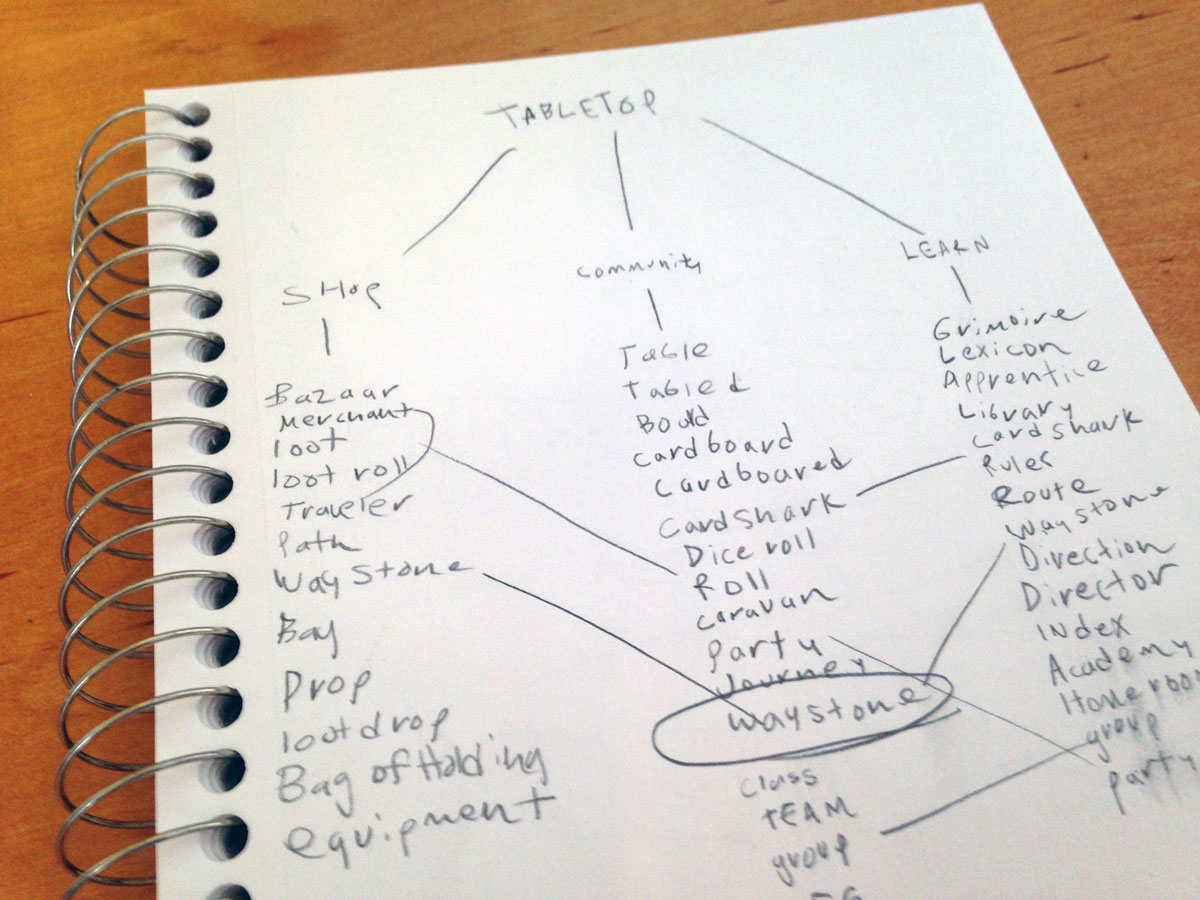 TABLETOP
SHOP
Bazaar
Merchant
loot
loot roll
Traveler
Path
Waystone
Bag
Drop
lootdrop
Bag of Holding
equipment
Community
Table
Tabled
Cardboard
Cardboared
CardShark
Dice roll
Roll
Caravan
Party
Journey
Waystone
Class
TEAM
group
LEARN
Grimoire
Lexicon
Apprentice
Library
CardShark
Rules
Route
Waystone
Direction
Director
Index
Academy
Homeroom
group
party